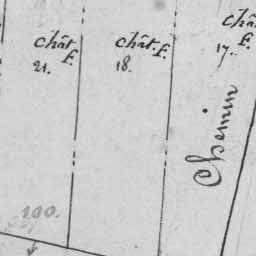 Chât
F.
21.
Chât.
F.
18.
Châ
F.
17.
Chemin
100.